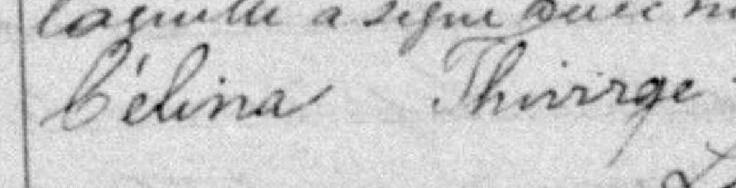 laquelle a signé avec
Célina Thivirge